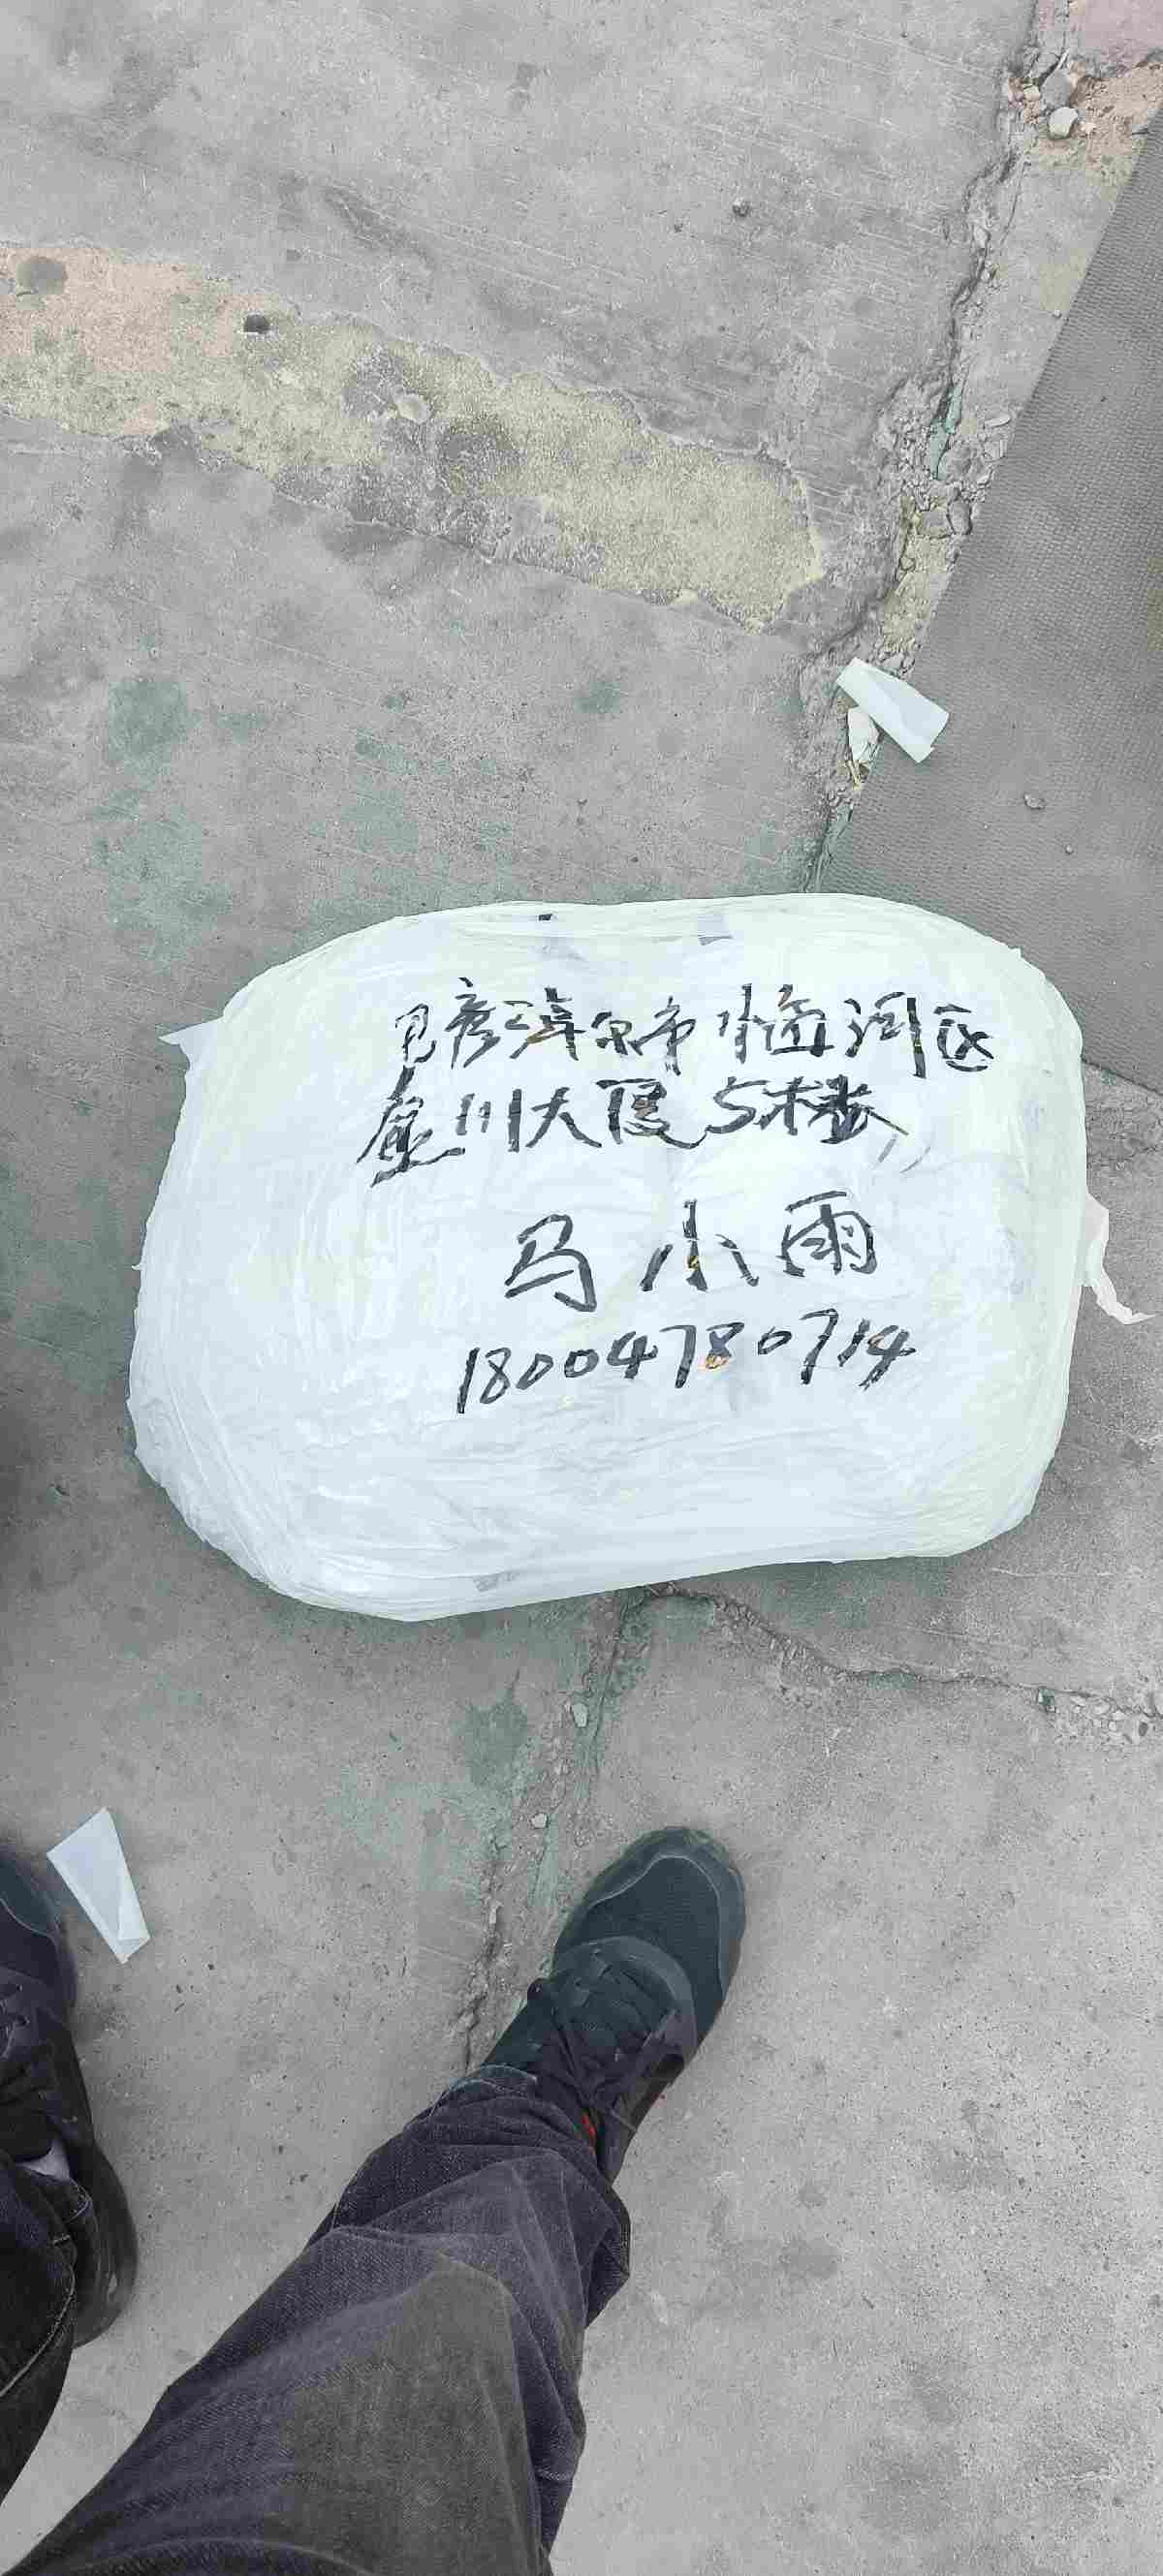 巴彦淖尔市临河区
金川大厦5楼
马小雨
18004780714